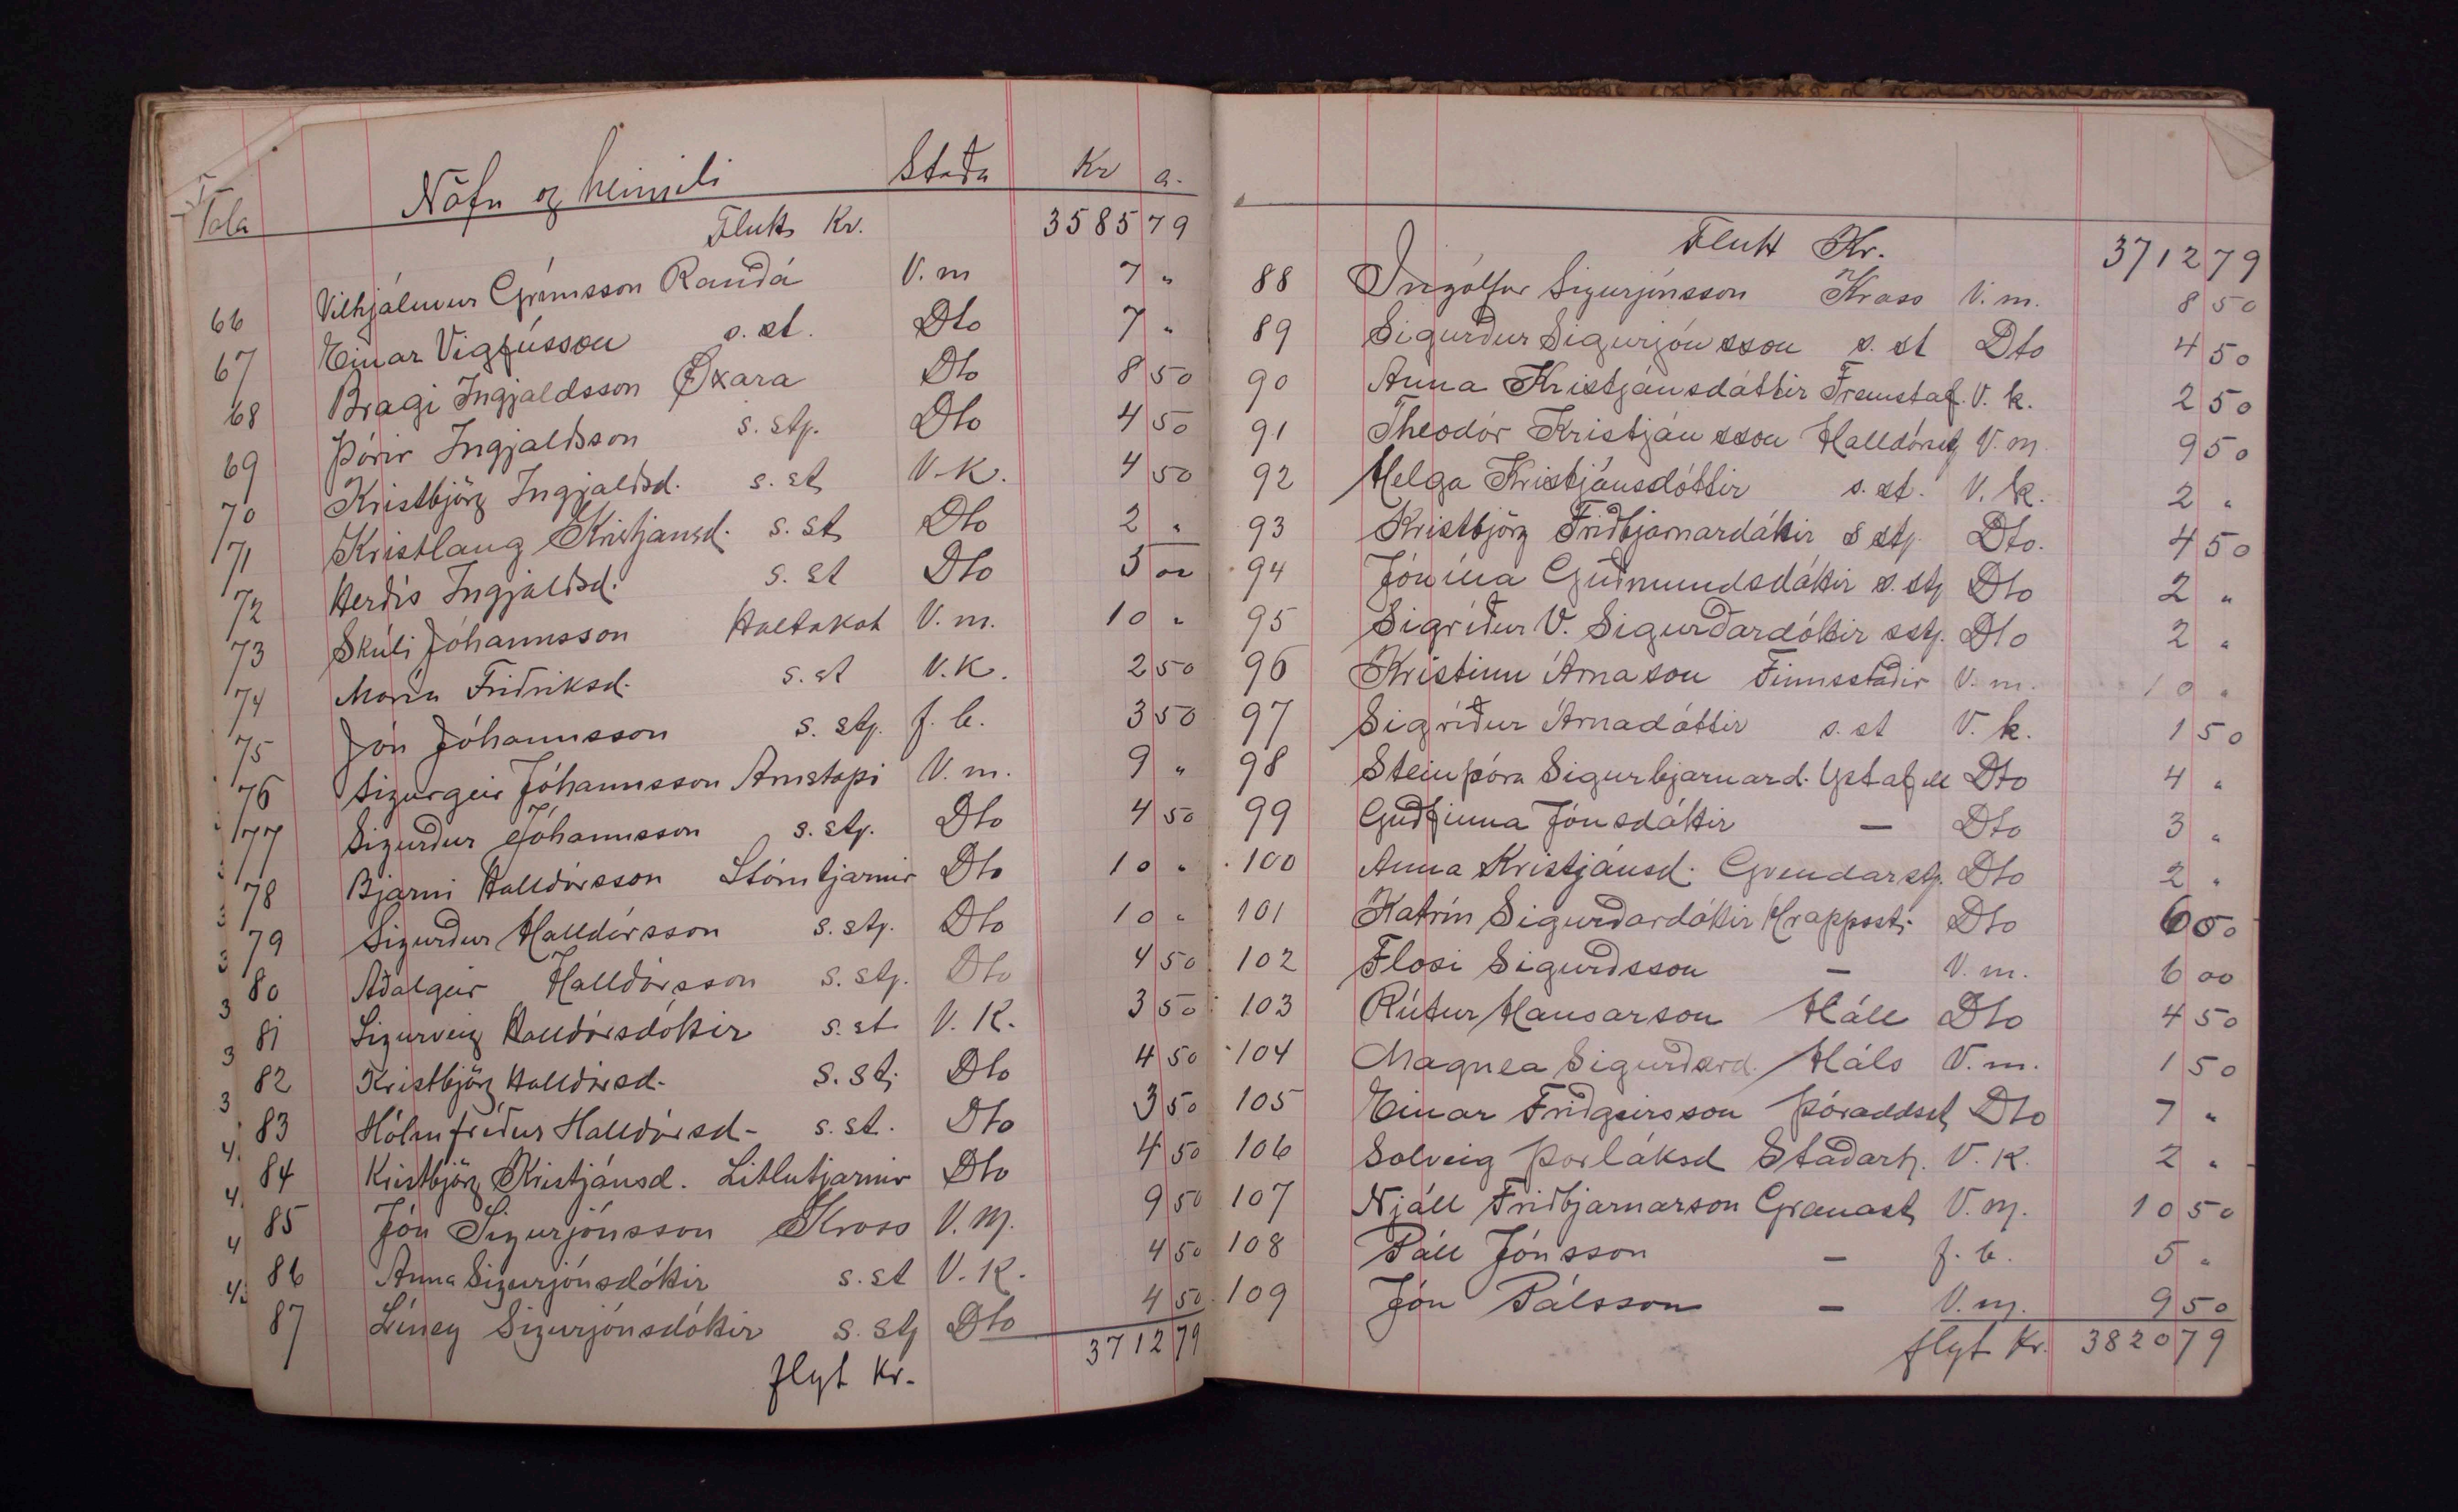 Tala Nöfn og heimili Staða Kr a.
Flutt Kr. 3585 79
66 Vilhjálmur Grímsson Rauðá V. m 7 "
67 Einar Vigfússon s. st. Dto 7 "
68 Bragi Ingjaldsson Öxará Dto 8 50
69 Þórir Ingjaldsson s. st. Dto 4 50
70 Kristbjörg Ingjaldsd. s. st V. K. 4 50
71 Kristlaug Kristjánsd. s. st Dto 2 "
72 Herdís Ingjaldsd. s. st Dto 3 00
73 Skúli Jóhannsson Holtakot V. m. 10 "
74 María Friðriksd. s. st V. K. 2 50
75 Jón Jóhannsson s. st. f. b. 3 50
76 Sigurgeir Jóhannsson Arnstapi V. m. 9 "
77 Sigurður Jóhannsson s. st. Dto 4 50
78 Bjarni Halldórsson Stórutjarnir Dto 10 "
79 Sigurður Halldórsson s. st. Dto 10 "
80 Aðalgeir Halldórsson s. st. Dto 4 50
81 Sigurveig Halldórsdóttir s. st V. K. 3 50
82 Kristbjörg Halldórsd. s. st. Dto 4 50
83 Hólmfríður Halldórsd- s. st. Dto 3 50
84 Kristbjörg Kristjánsd. Litlutjarnir Dto 4 50
85 Jón Sigurjónsson Kross V. m. 9 50
86 Anna Sigurjónsdóttir s. st V. K. 4 50
87 Líney Sigurjónsdóttir s. st Dto 4 50
flyt Kr. 3712 79
Flutt Kr. 3712 79
88 Ingólfur Sigurjónsson Kross V. m. 8 50
89 Sigurður Sigurjónsson s. st Dto 4 50
90 Anna Kristjánsdóttir Fremstaf. V. k. 2 50
91 Theodór Kristjánsson Halldórst V. m. 9 50
92 Helga Kristjánsdóttir s. st. V. k. 2 "
93 Kristbjörg Friðbjarnardóttir s st. Dto. 4 50
94 Jónína Guðmundsdóttir s. st Dto 2 "
95 Sigríður V. Sigurðardóttir s st. Dto 2 "
96 Kristinn Árnason Finnsstaðir V. m. 10 "
97 Sigríður Árnadóttir s. st V. k. 1 50
98 Steinþóra Sigurbjarnard. Ystafell Dto 4 "
99 Guðfinna Jónsdóttir — Dto 3 "
100 Anna Kristjánsd. Gvendarst. Dto 2 "
101 Katrín Sigurðardóttir Hrappsst. Dto 6 50
102 Flosi Sigurðsson — V. m. 6 00
103 Rútur Hansarson Háls Dto 4 50
104 Magnea Sigurðard. Háls V. m. 1 50
105 Einar Friðgeirsson Þóroddst Dto 7 "
106 Solveig Þorláksd Staðarh. V. K. 2 "
107 Njáll Friðbjarnarson Granast V. m. 10 50
108 Páll Jónsson — f. b. 5 "
109 Jón Pálsson — V. m. 9 50
flyt Kr. 3820 79